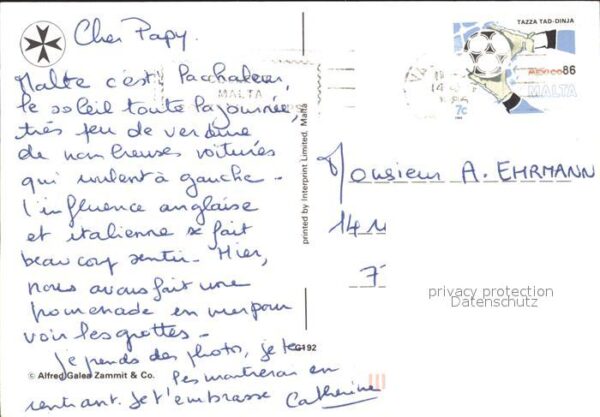 Cher Papy.
Malte c'est la chaleur,
le soleil toute la journée,
très peu de verdure
de nombreuses voitures
qui roulent à gauche -
l'influence anglaise
et italienne se fait
beaucoup sentir. Hier,
nous avons fait une
promenade en mer pour
voir les grottes -
Je prends des photos, je te
les montrerai en
rentrant. Je t'embrasse Catherine
© Alfred Galea Zammit & Co.
G192
printed by Interprint Limited, Malta
MALTA
TAZZA TAD-DINJA
MEXICO 86
MALTA
7c
Monsieur A. EHRMANN
14
7
privacy protection
Datenschutz